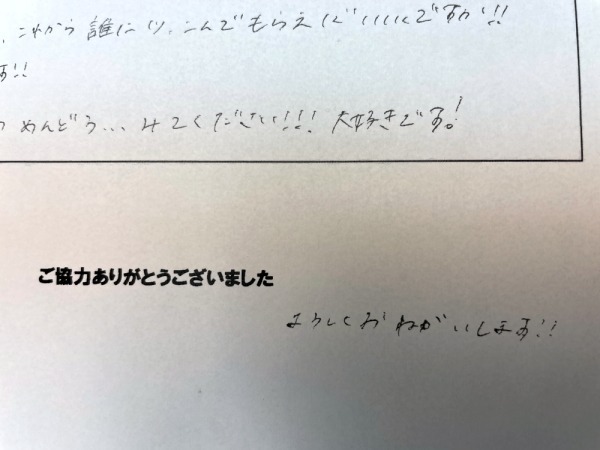 、これから誰につっこんでもらえばいいいいですか!!
す!!
めんどう…みてください!!! 大好きです!
ご協力ありがとうございました
よろしくおねがいします!!